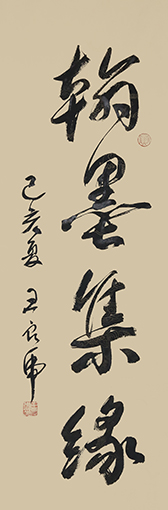 翰墨集缘
己亥夏 王良虎